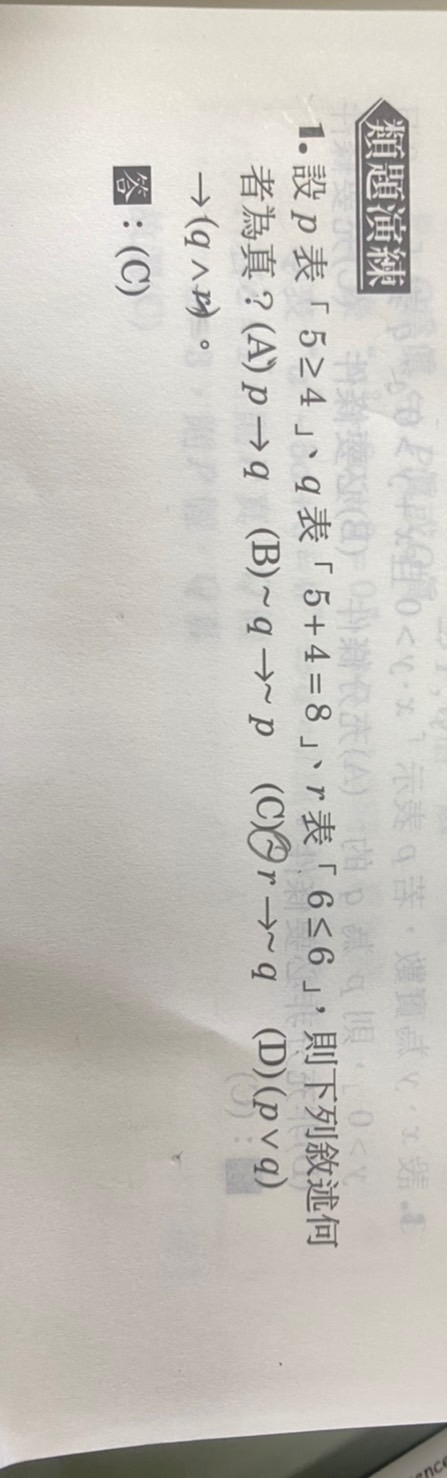 類題演練
1. 設 p 表「5≥4」、q 表「5+4=8」、r 表「6≤6」,則下列敘述何
者為真?(A) p→q (B)~q→~p (C)~r→~q (D)(p∨q)
→(q∧r)。
答:(C)